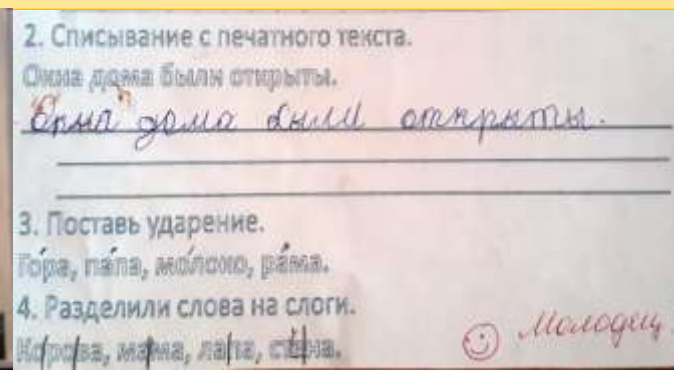 2. Списывание с печатного текста.
Окна дома были открыты.
Окна дома были открыты.
3. Поставь ударение.
Го́ра, па́па, мо́локо, ра́ма.
4. Разделили слова на слоги.
Ко|ро|ва, ма|ма, ла|па, сте|на.
Молодец